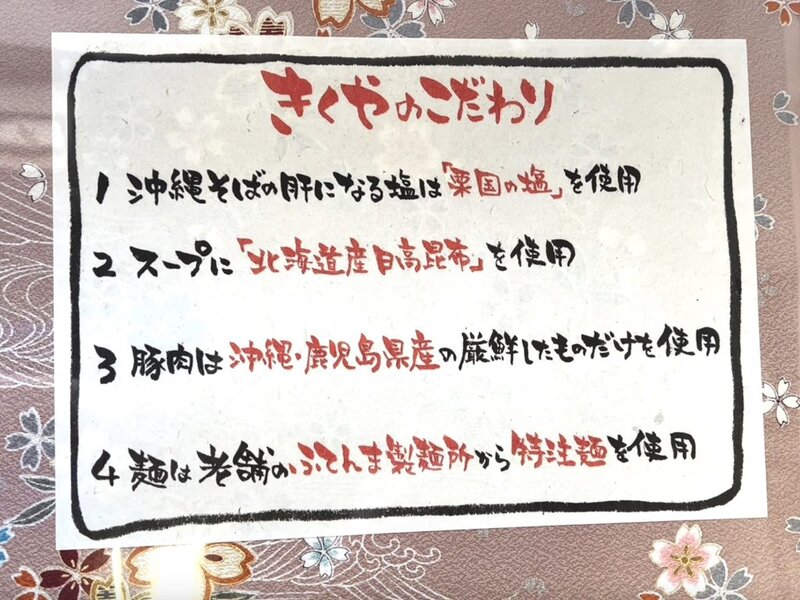 きくやのこだわり
1 沖縄そばの肝になる塩は「粟国の塩」を使用
2 スープに「北海道産日高昆布」を使用
3 豚肉は沖縄・鹿児島県産の厳鮮したものだけを使用
4 麺は老舗のふてんま製麺所から特注麺を使用